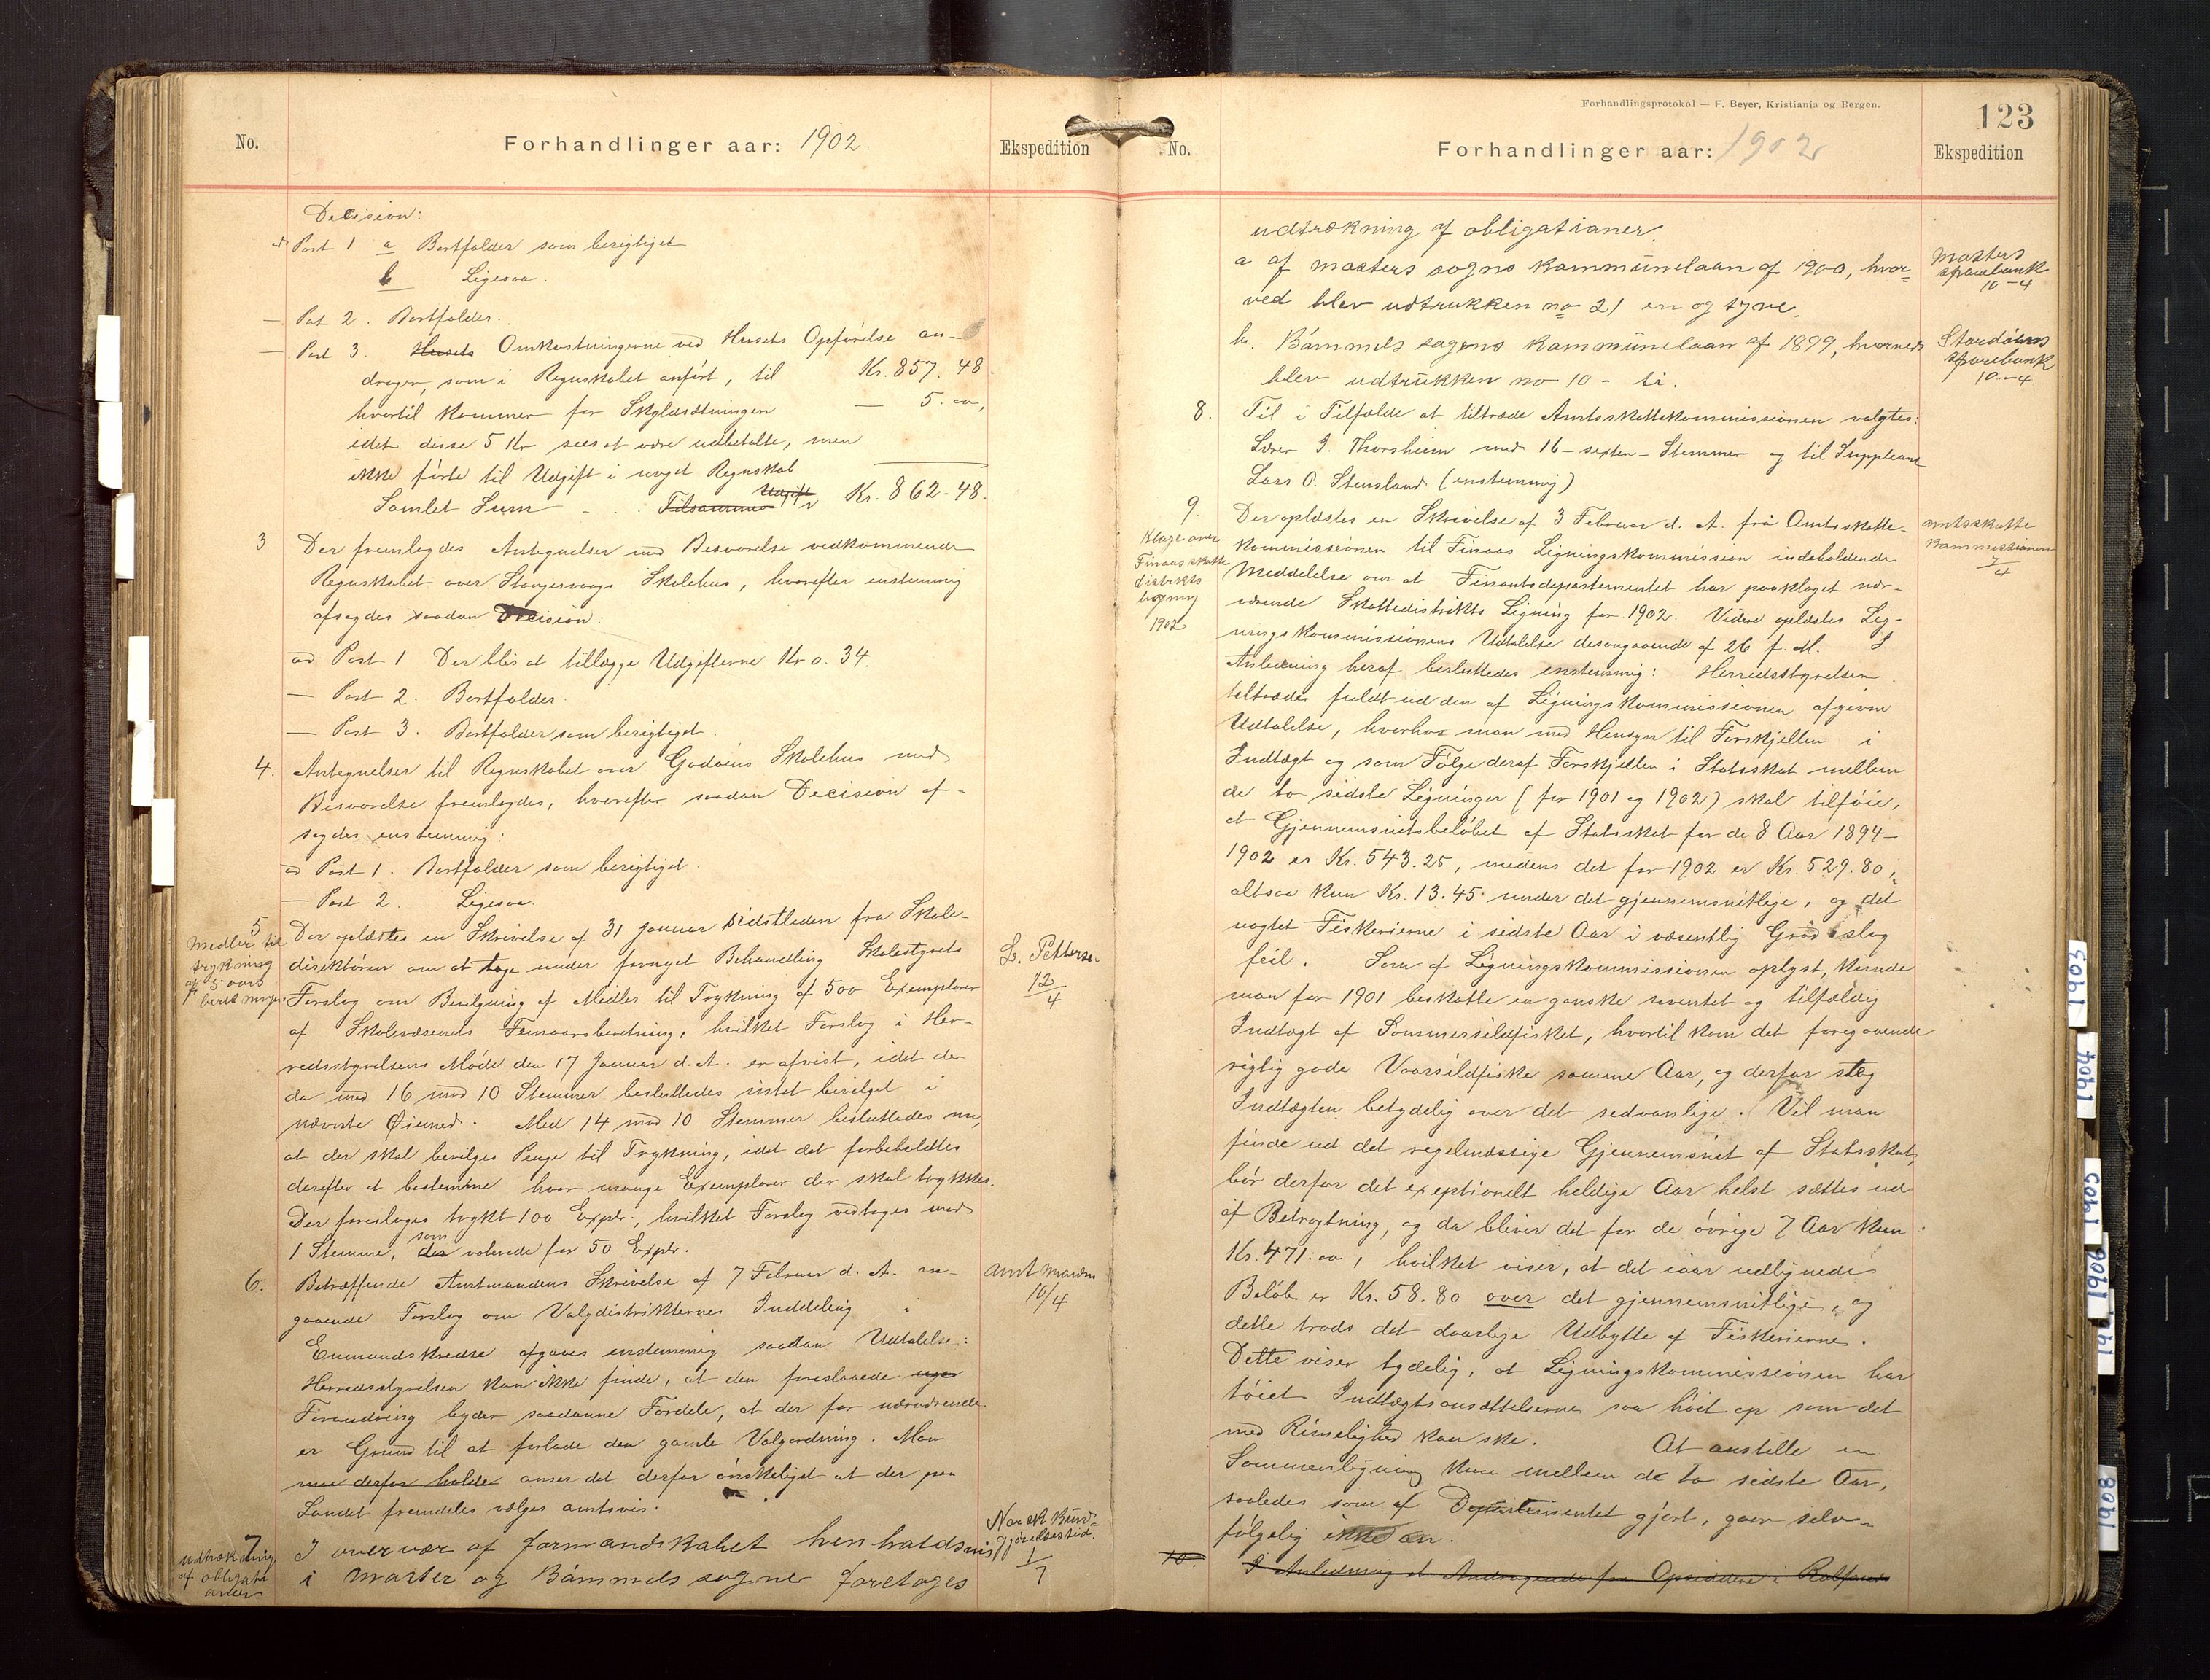 No.
Forhandlinger aar: 1902
Ekspedition
Decision:
ad Post 1 a Bortfalder som berigtiget
b Ligesaa.
— Post 2. Bortfalder.
— Post 3. Husets Omkostningerne ved Husets Opførelse an-
drager, som i Regnskabet anført, til Kr. 857.48
hvortil kommer for Skyldsætningen — 5.00,
idet disse 5 Kr sees at være udbetalte, men
ikke førte til Udgift i noget Regnskab
Samlet Sum Tilsammen Udgift Kr. 862.48.
3 Der fremlagdes Antegnelser med Besvarelse vedkommende
Regnskabet over Stangervaags Skolehus, hvorefter enstemmig
afsagdes saadan Decision:
ad Post 1 Der blir at tillægge Udgifterne Kr 0.34.
— Post 2. Bortfalder.
— Post 3. Bortfalder som berigtiget.
4. Antegnelser til Regnskabet over Godøens Skolehus med
Besvarelse fremlagdes, hvorefter saadan Decision af-
sagdes enstemmig:
ad Post 1. Bortfalder som berigtiget.
— Post 2. Ligesaa.
5
Midler til
trykning
af 5 aars
beretningen
Der oplæstes en Skrivelse af 31 Januar sidstleden fra Skole-
direktøren om at tage under fornyet Behandling Skolestyrets
Forslag om Bevilgning af Midler til Trykning af 500 Exemplarer
af Skolevæsenets Femaarsberetning, hvilket Forslag i Her-
redsstyrelsens Møde den 17 Januar d. A. er afvist, idet der
da med 16 mod 10 Stemmer besluttedes intet bevilget i
nævnte Øiemed. Med 14 mod 10 Stemmer besluttedes nu,
at der skal bevilges Penge til Trykning, idet det forbeholdtes
derefter at bestemme hvor mange Exemplarer der skal trykkes.
Der foresloges trykt 100 Explr., hvilket Forslag vedtoges mod
1 Stemme, der som voterede for 50 Explr.
L. Petterse
12/4
6. Betræffende Amtmandens Skrivelse af 7 Februar d. A. an-
gaaende Forslag om Valgdistrikternes Inddeling i
Enmandskredse afgaves enstemmig saadan Udtalelse:
Herredsstyrelsen kan ikke finde, at den foreslaaede
Forandring byder saadanne Fordele, at der for nærværende
er Grund til at forlade den gamle Valgordning. Man
maa derfor holde anser det derfor ønskeligst at der paa
Landet fremdeles vælges amtsvis.
Amtmanden
10/4
7. udtrækning
af obligati
oner
I overvær af formandskabet henholdsvis
i Moster og Bømmels sogne foretoges
Norsk Kund-
gjørelsestid.
1/7
Forhandlingsprotokol — F. Beyer, Kristiania og Bergen.
123
No.
Forhandlinger aar: 1902
Ekspedition
udtrækning af obligationer.
a af mosters sogns kommunelaan af 1900, hvor-
ved blev udtrukken no 21 en og tyve.
Mosters
sparebank
10-4
b. Bømmels sogens kommunelaan af 1899, hvorved
blev udtrukken no 10 - ti.
Stordøens
sparebank
10-4
8. Til i Tilfælde at tiltræde Amtsskattekommissionen valgtes:
Lærer I. Thorsheim med 16 - sexten - Stemmer og til Suppleant
Lars O. Stensland (enstemmig)
9.
Klage over
Finaas skatte
distrikts
ligning
1902
Der oplæstes en Skrivelse af 3 Februar d. A. fra Amtsskatte-
kommissionen til Finaas Ligningskommission indeholdende
Meddelelse om at Finantsdepartementet har paaklaget nær-
værende Skattedistrikts Ligning for 1902. Videre oplæstes Lig-
ningskommissionens Udtalelse desangaaende af 26 f. M. I
Anledning heraf besluttedes enstemmig: Herredsstyrelsen
tiltræder fuldt ud den af Ligningskommissionen afgivne
Udtalelse, hvorhos man med Hensyn til Forskjellen i
Indtægt og som Følge deraf Forskjellen i Statsskat mellem
de to sidste Ligninger (for 1901 og 1902) skal tilføie,
at Gjennemsnitsbeløbet af Statsskat for de 8 Aar 1894-
1902 er Kr. 543.25, medens det for 1902 er Kr. 529.80,
altsaa kun Kr. 13.45 under det gjennemsnitlige, og det
uagtet Fiskerierne i sidste Aar i væsentlig Grad slog
feil. Som af Ligningskommissionen oplyst, kunde
man for 1901 beskatte en ganske uventet og tilfældig
Indtægt af Sommersildfisket, hvortil kom det foregaaende
rigtig gode Vaarsildfiske samme Aar, og derfor steg
Indtægten betydelig over det sedvanlige. Vil man
finde ud det regelmæssige Gjennemsnit af Statsskat,
bør derfor det exeptionelt heldige Aar helst sættes ud
af Betragtning, og da bliver det for de øvrige 7 Aar kun
Kr. 471.00, hvilket viser, at det iaar udlignede
Beløb er Kr. 58.80 over det gjennemsnitlige, og
dette trods det daarlige Udbytte af Fiskerierne.
Dette viser tydelig, at Ligningskommissionen har
tøiet Indtægtsansættelserne saa høit op som det
med Rimelighed kan ske. At anstille en
Sammenligning kun mellem de to sidste Aar,
saaledes som af Departementet gjort, gaar selv-
følgelig ikke an.
amtsskatte
kommissionen
7/4
10. I Anledning af Andragende fra Opsiddere i
1903
1904
1905
1906
1908